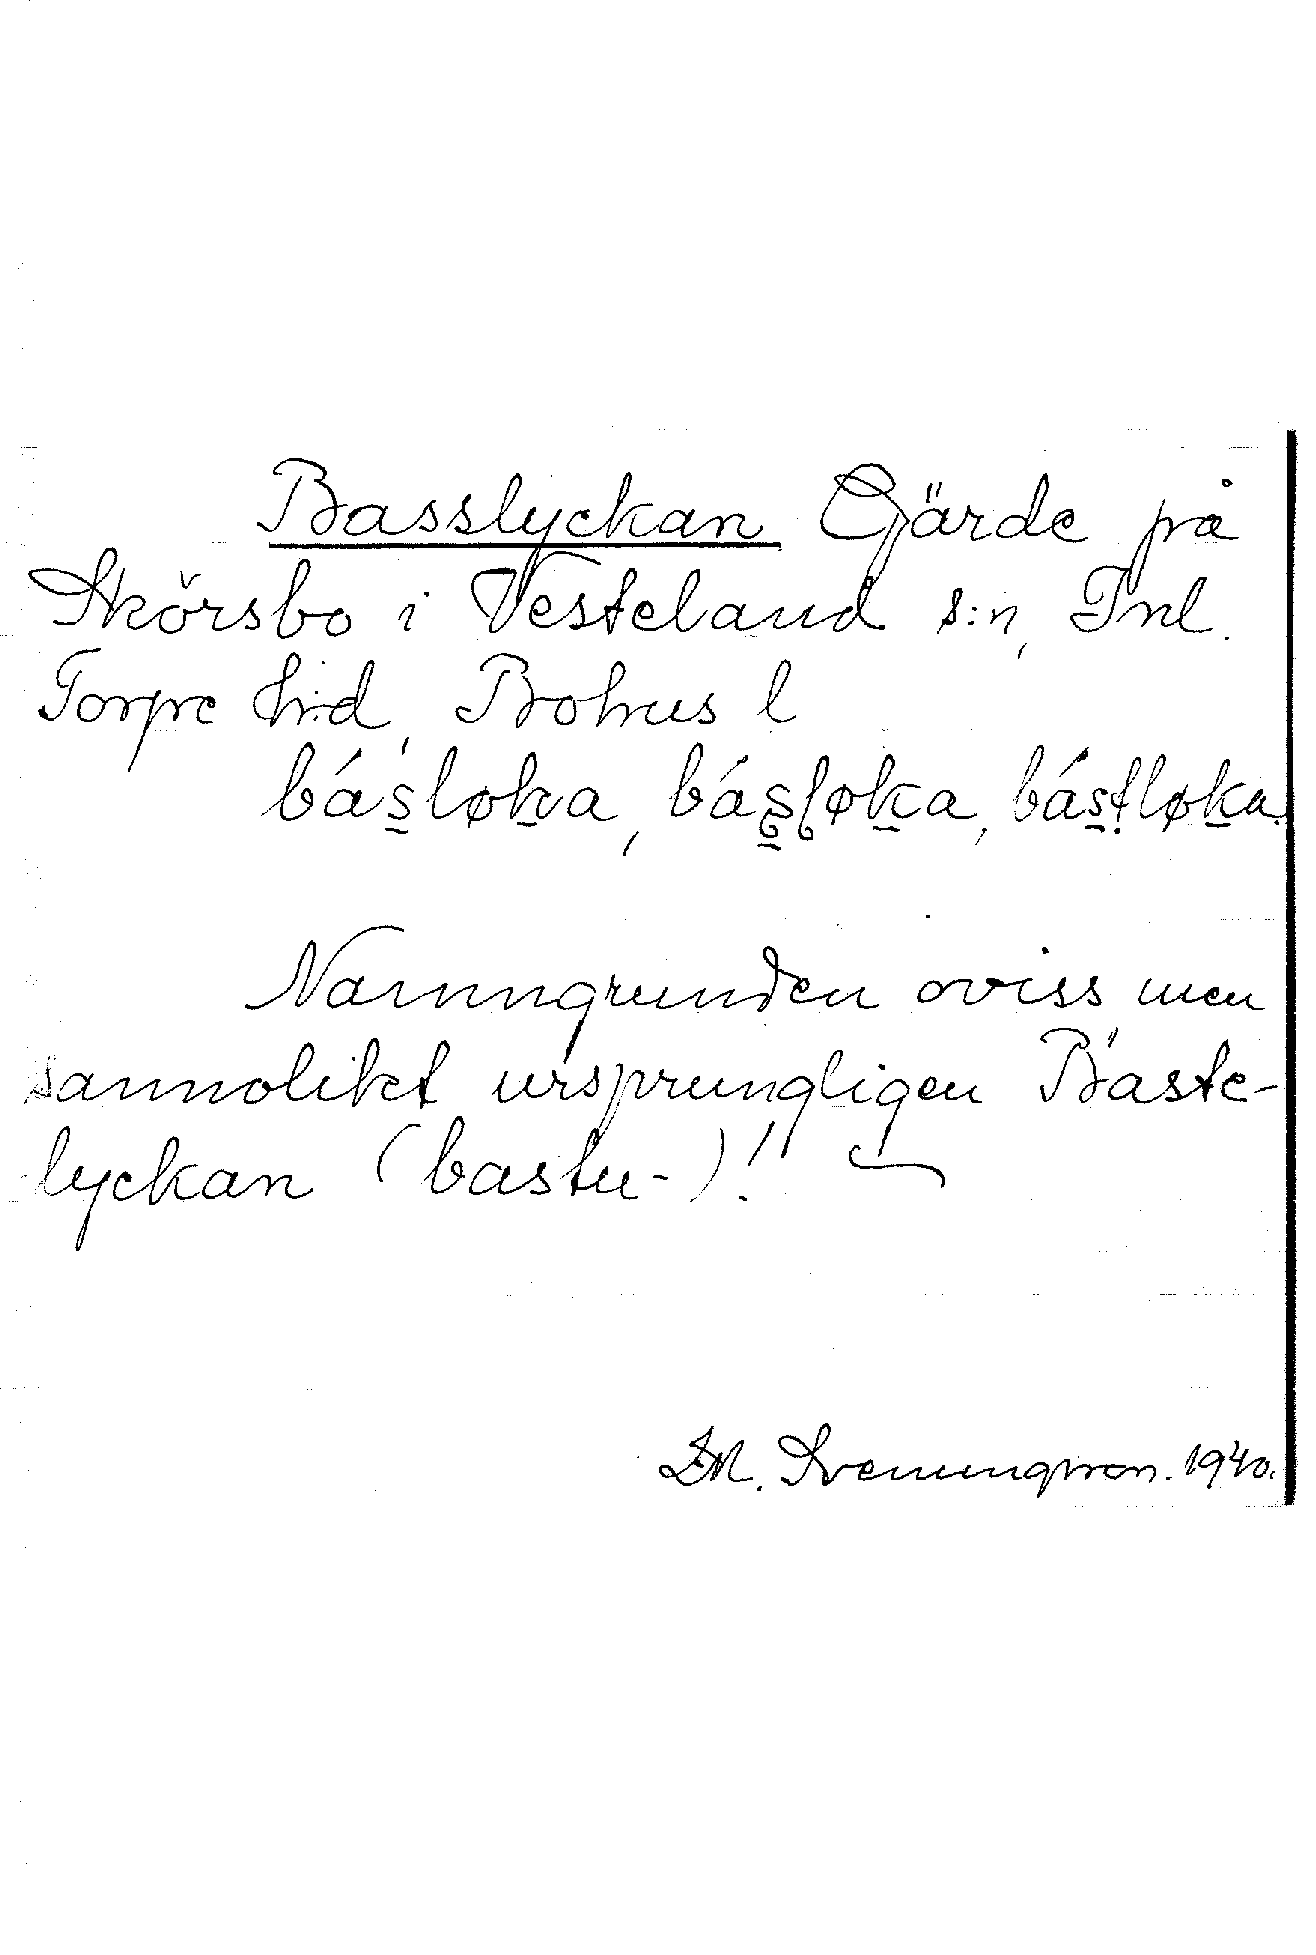 Basslyckan Gärde på
Skörsbo i Vesterland s:n, Inl.
Torpe h:d, Bohus l
bás̱løḵa, bás̱løḵa, bás̱tløḵa.
Namngrunden oviss men
sannolikt ursprungligen "Baste-
lyckan (bastu-)!"
E.M. Svenungsson. 1940.